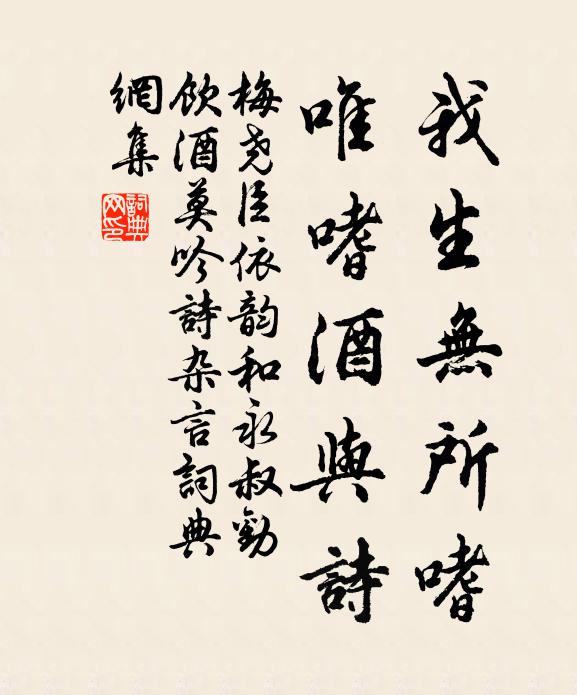 我生無所嗜
唯嗜酒與詩
梅尧臣依韵和永叔勸
飲酒莫吟詩杂言詞典
網集
詞典
网印